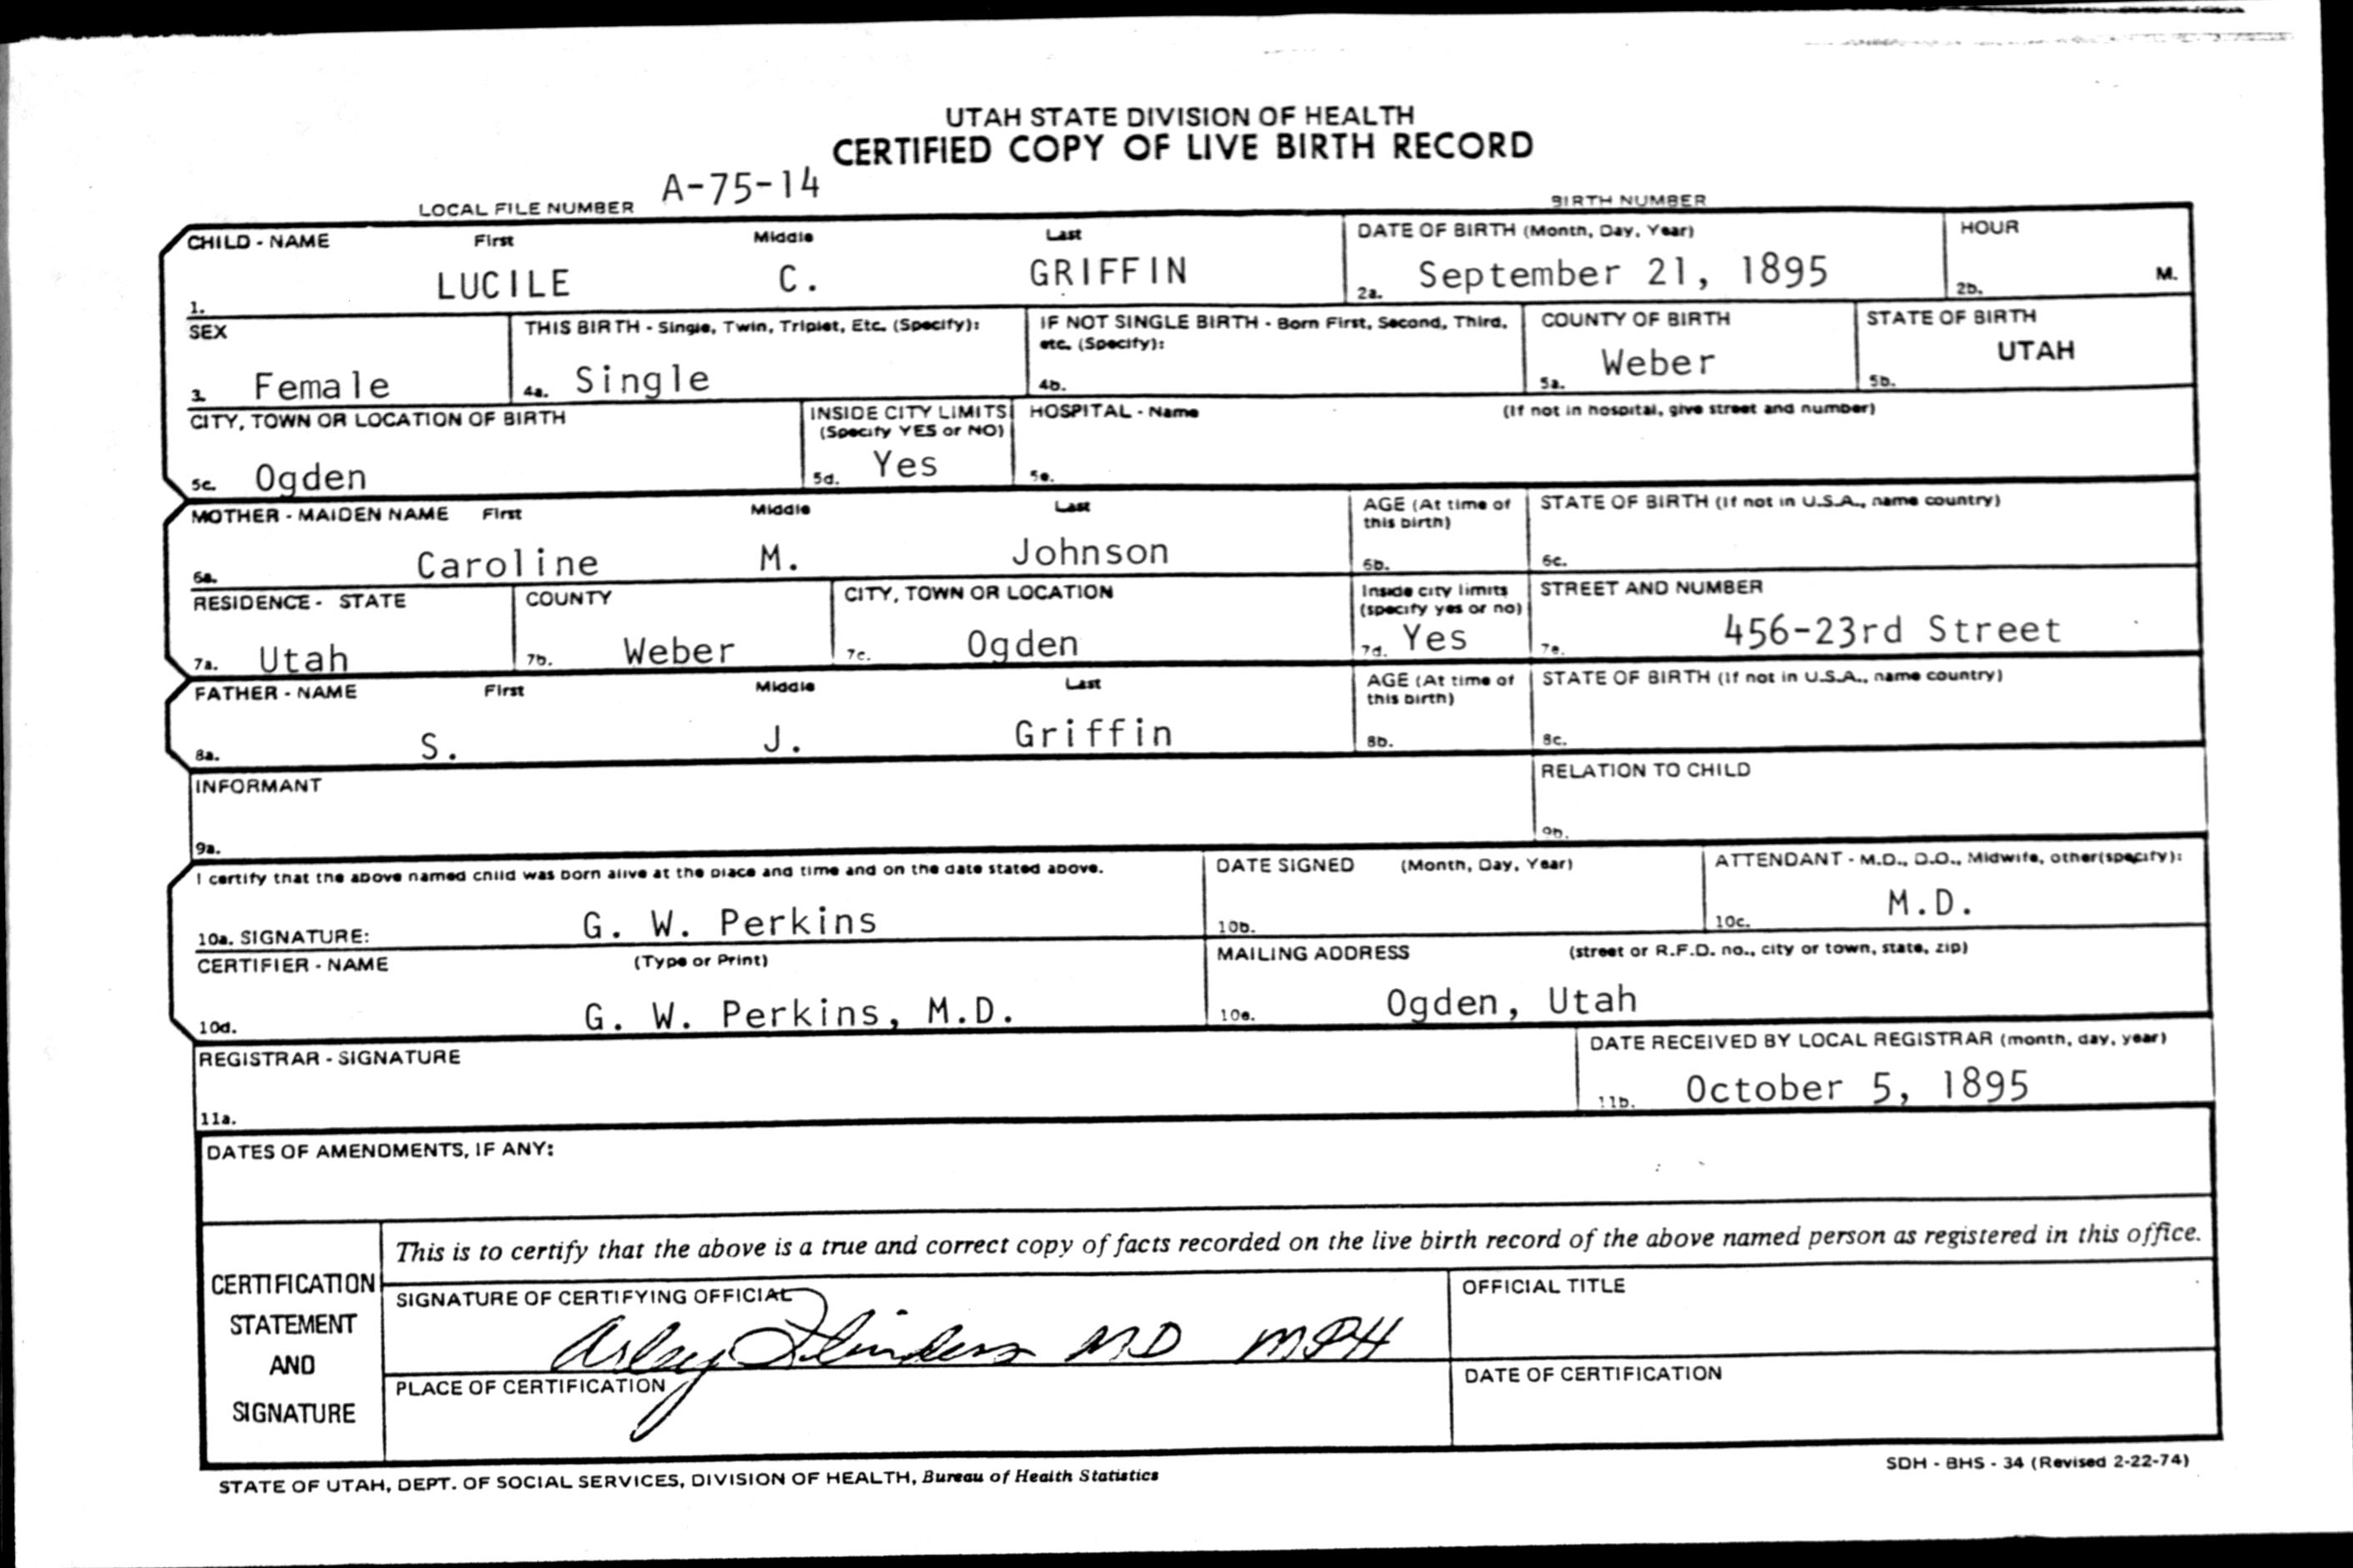 UTAH STATE DIVISION OF HEALTH
CERTIFIED COPY OF LIVE BIRTH RECORD
LOCAL FILE NUMBER A-75-14 BIRTH NUMBER
CHILD - NAME First Middle Last DATE OF BIRTH (Month, Day, Year) HOUR
1. LUCILE C. GRIFFIN 2a. September 21, 1895 2b. M.
SEX THIS BIRTH - Single, Twin, Triplet, Etc. (Specify): IF NOT SINGLE BIRTH - Born First, Second, Third, etc. (Specify): COUNTY OF BIRTH STATE OF BIRTH
3. Female 4a. Single 4b. 5a. Weber 5b. UTAH
CITY, TOWN OR LOCATION OF BIRTH INSIDE CITY LIMITS (Specify YES or NO) HOSPITAL - Name (If not in hospital, give street and number)
5c. Ogden 5d. Yes 5e.
MOTHER - MAIDEN NAME First Middle Last AGE (At time of this birth) STATE OF BIRTH (If not in U.S.A., name country)
6a. Caroline M. Johnson 6b. 6c.
RESIDENCE - STATE COUNTY CITY, TOWN OR LOCATION Inside city limits (specify yes or no) STREET AND NUMBER
7a. Utah 7b. Weber 7c. Ogden 7d. Yes 7e. 456-23rd Street
FATHER - NAME First Middle Last AGE (At time of this birth) STATE OF BIRTH (If not in U.S.A., name country)
8a. S. J. Griffin 8b. 8c.
INFORMANT RELATION TO CHILD
9a. 9b.
I certify that the above named child was born alive at the place and time and on the date stated above. DATE SIGNED (Month, Day, Year) ATTENDANT - M.D., D.O., Midwife, other(specify):
10a. SIGNATURE: G. W. Perkins 10b. 10c. M.D.
CERTIFIER - NAME (Type or Print) MAILING ADDRESS (street or R.F.D. no., city or town, state, zip)
10d. G. W. Perkins, M.D. 10e. Ogden, Utah
REGISTRAR - SIGNATURE DATE RECEIVED BY LOCAL REGISTRAR (month, day, year)
11a. 11b. October 5, 1895
DATES OF AMENDMENTS, IF ANY:
CERTIFICATION STATEMENT AND SIGNATURE
This is to certify that the above is a true and correct copy of facts recorded on the live birth record of the above named person as registered in this office.
SIGNATURE OF CERTIFYING OFFICIAL OFFICIAL TITLE
Flinders MD MPH
PLACE OF CERTIFICATION DATE OF CERTIFICATION
STATE OF UTAH, DEPT. OF SOCIAL SERVICES, DIVISION OF HEALTH, Bureau of Health Statistics SDH - BHS - 34 (Revised 2-22-74)